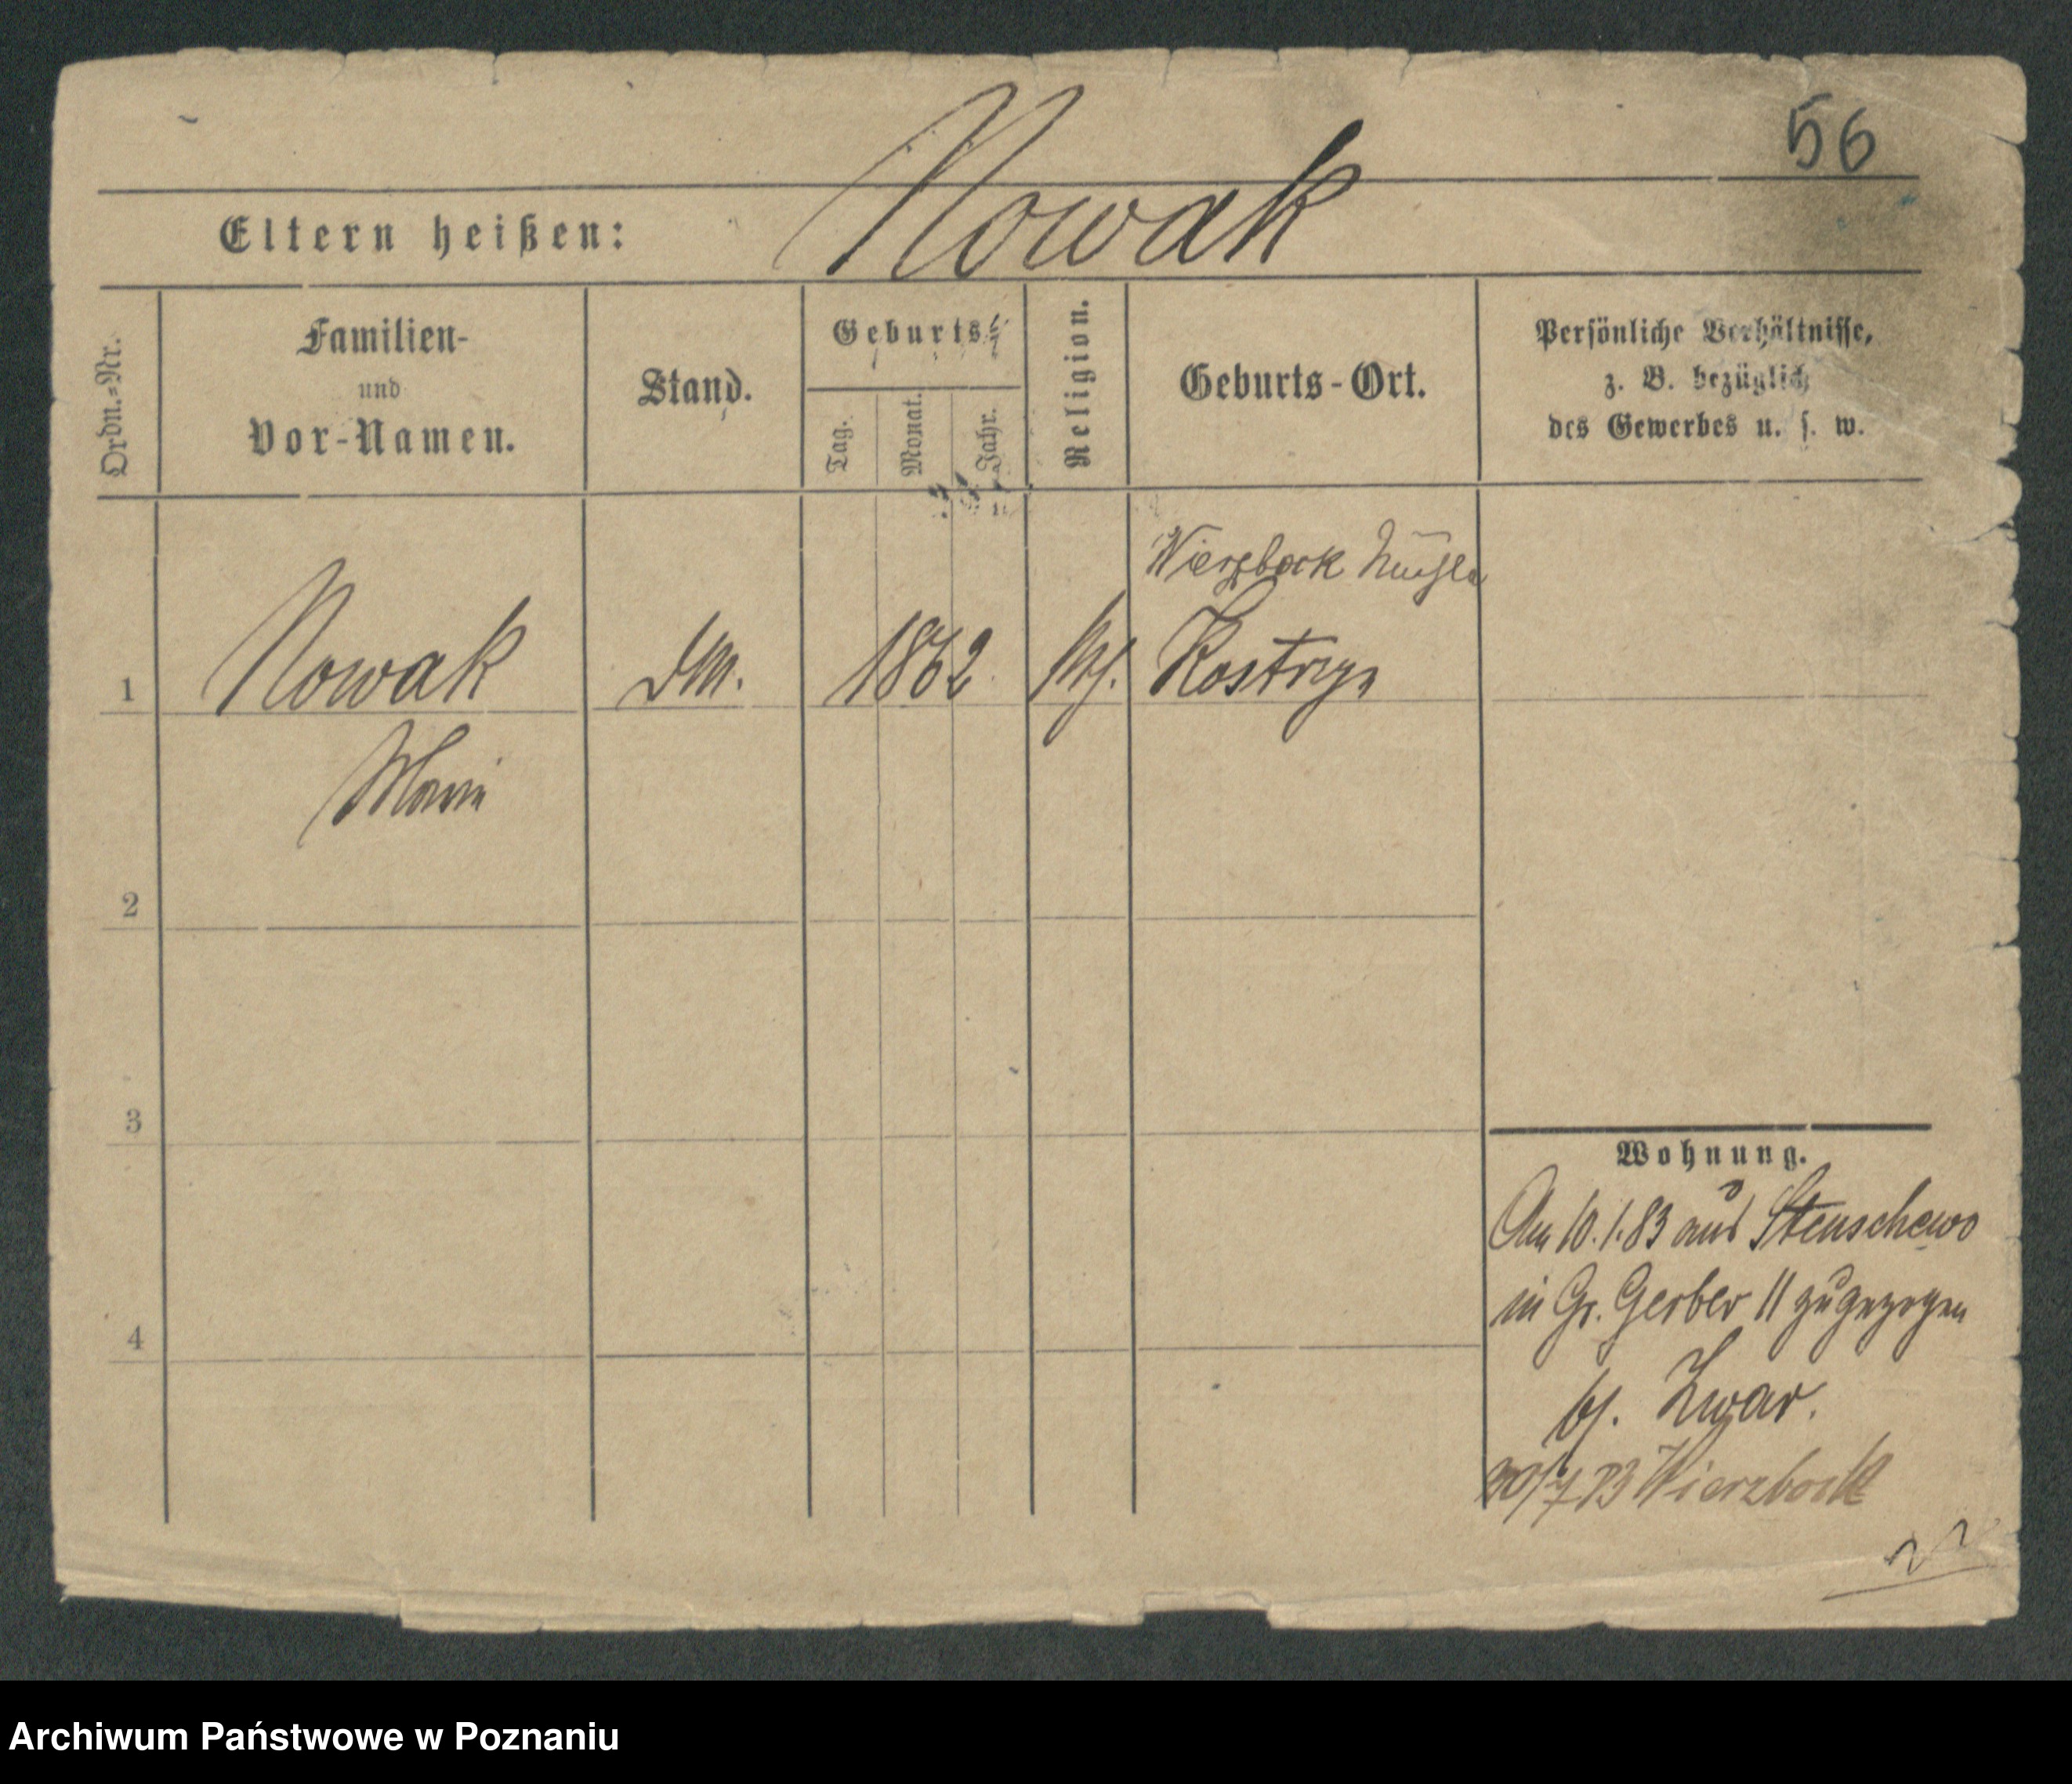 56
Nowak
Eltern heißen:
Ordn.=Nr.
Familien-
und
Vor-Namen.
Stand.
Geburts-
Tag.
Monat.
Jahr.
Religion.
Geburts-Ort.
Persönliche Verhältnisse,
z. B. bezüglich
des Gewerbes u. s. w.
Wierzbock
1
Nowak
1862
Marie
2
3
4
Wohnung.
Am 10.1.83 aus Stenschewo
in Gr. Gerber 11 zugezogen
bj. Zwar.
83 Wierzbock
Archiwum Państwowe w Poznaniu